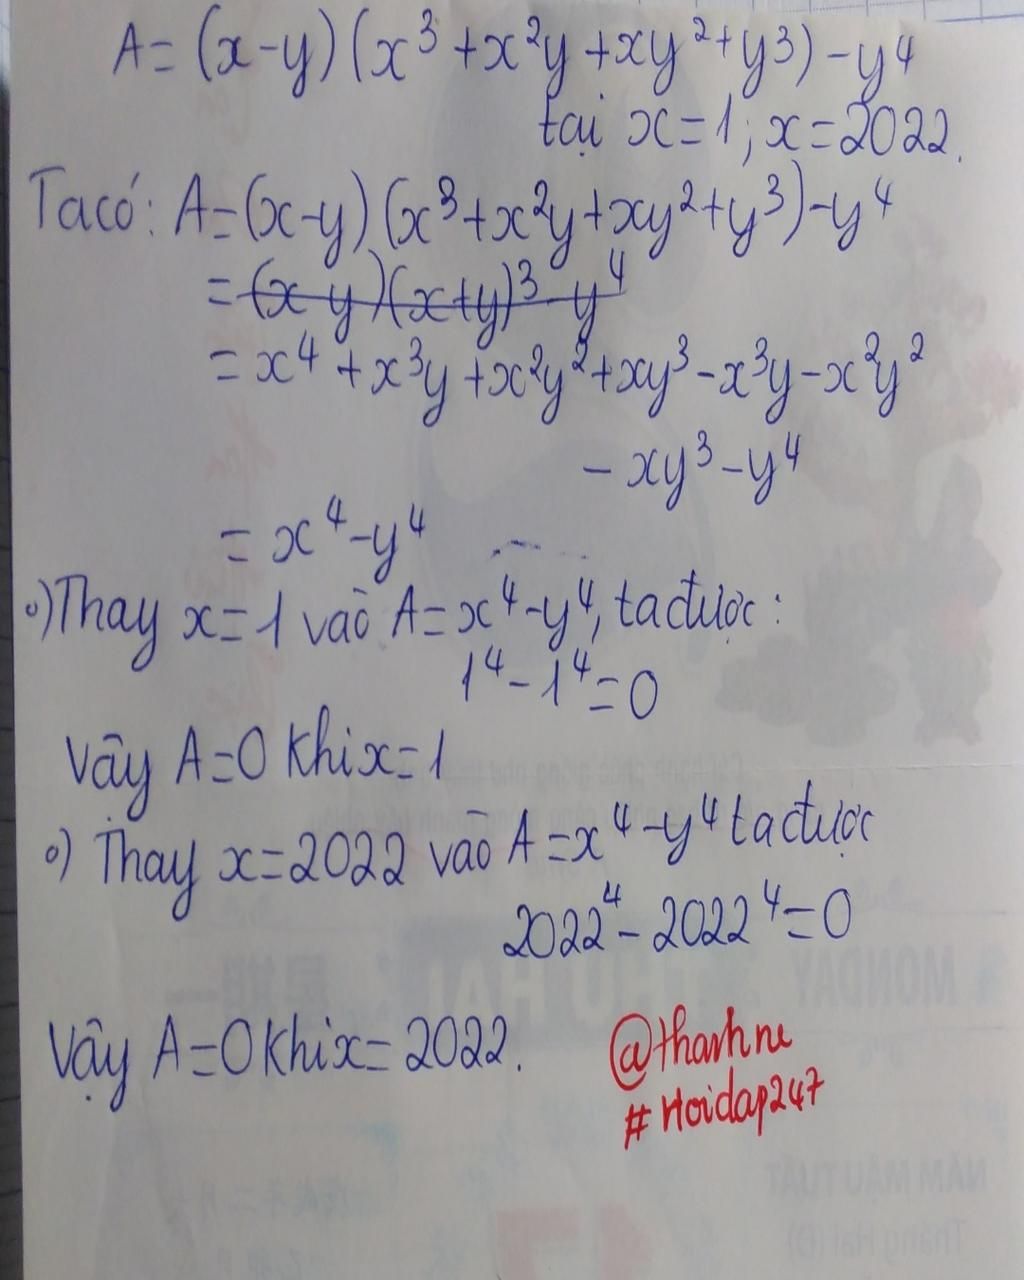 A = (x-y) (x³ + x²y + xy² + y³) - y⁴
tại x = 1; x = 2022.
Ta có: A = (x-y) (x³ + x²y + xy² + y³) - y⁴
= (x-y)(x+y)³-y⁴
= x⁴ + x³y + x²y² + xy³ - x³y - x²y²
- xy³ - y⁴
= x⁴ - y⁴
o) Thay x = 1 vào A = x⁴ - y⁴, ta được:
1⁴ - 1⁴ = 0
Vậy A = 0 khi x = 1
o) Thay x = 2022 vào A = x⁴ - y⁴ ta được
2022⁴ - 2022⁴ = 0
Vậy A = 0 khi x = 2022.
@thanh ne
#Hoidap247
MONDAY THỨ HAI 星期一
NĂM MẬU TUẤT
Tháng Hai (Đ)
17